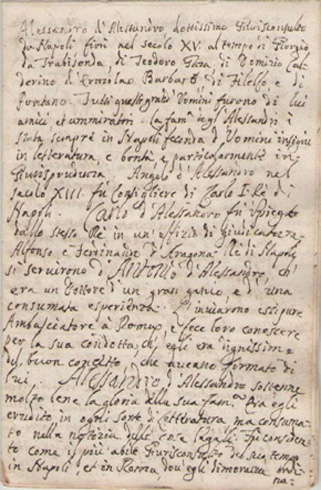 Alessandro d'Alessandro dottissimo Giurisconsulto
da Napoli fiorì nel secolo XV. al tempo di Giorgio
da Trabisonda, di Teodoro Gaza di Domizio Cal-
derino d'Ermolao Barbaro di Filelfo e di
Pontano. Tutti questi grand'Uomini furono di lui
amici et ammiratori. La fam.a degli Alessandri è
stata sempre in Napoli feconda d'Uomini insigni
in letteratura, e bontà e particolarmente in
Giurisprudenza. Angelo d'Alessandro nel
secolo XIII. fu Consigliere di Carlo I. Re di
Napoli. Carlo d'Alessandro fu impiegato
dallo stesso Re in un'uffizio di Giudicatore
Alfonso e Ferdinando d'Aragona Re di Napoli
si servirono d'Antonio d'Alessandro, ch'
era un Dottore d'un gran genio e d'una
consumata esperienza. L'inviarono essi pure
Ambasciatore a Roma, e fece loro conoscere
per la sua condotta, ch'egli era dignissimo
del buon concetto, che aveano formato di
lui. Alessandro d'Alessandro sostenne
molto bene la gloria della sua fam.a Era egli
erudito in ogni sorte di letteratura ma consuma-
to nella notizia delle cose legali. Fu considera-
to come il più abile Giurisconsulto del suo tempo
in Napoli, et in Roma, dov'egli dimorava ordi-
na-